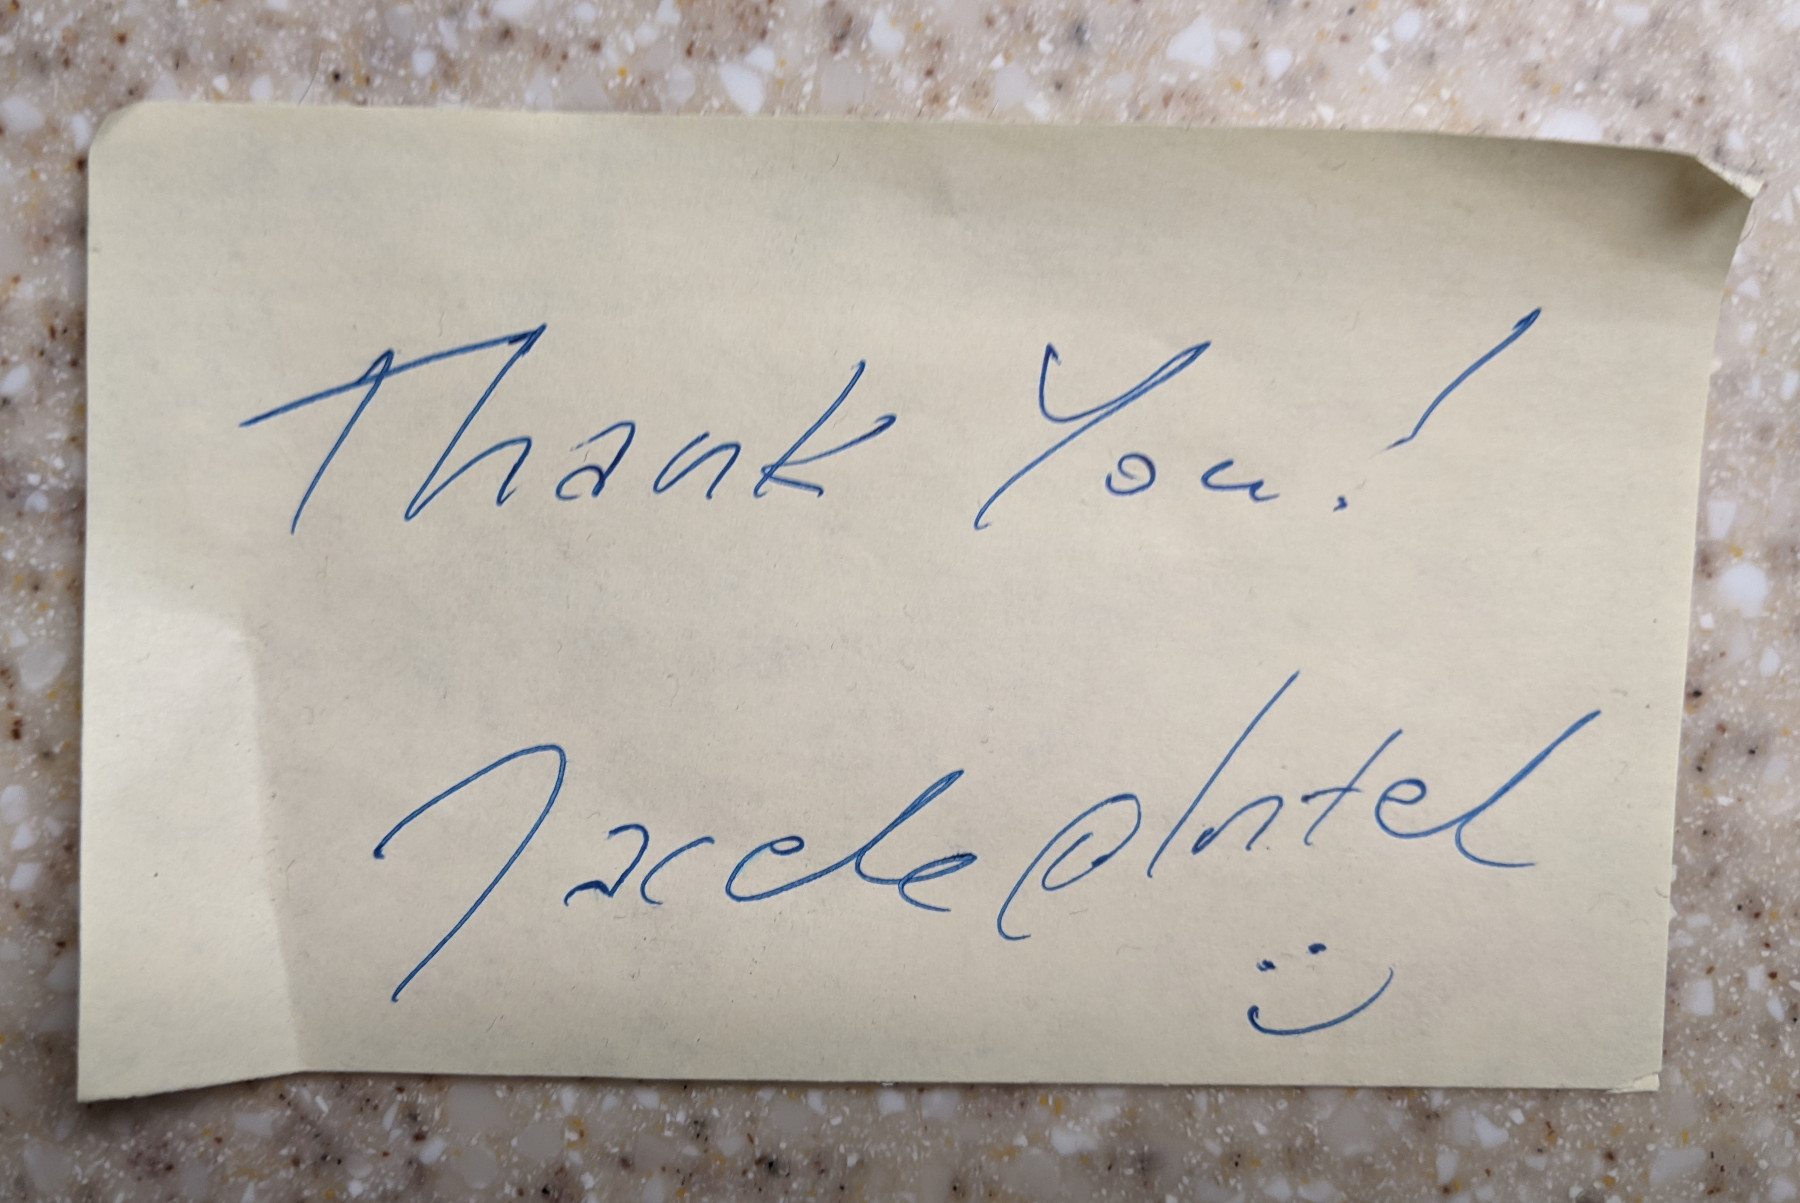 Thank You!
Jarele@Intel
:)